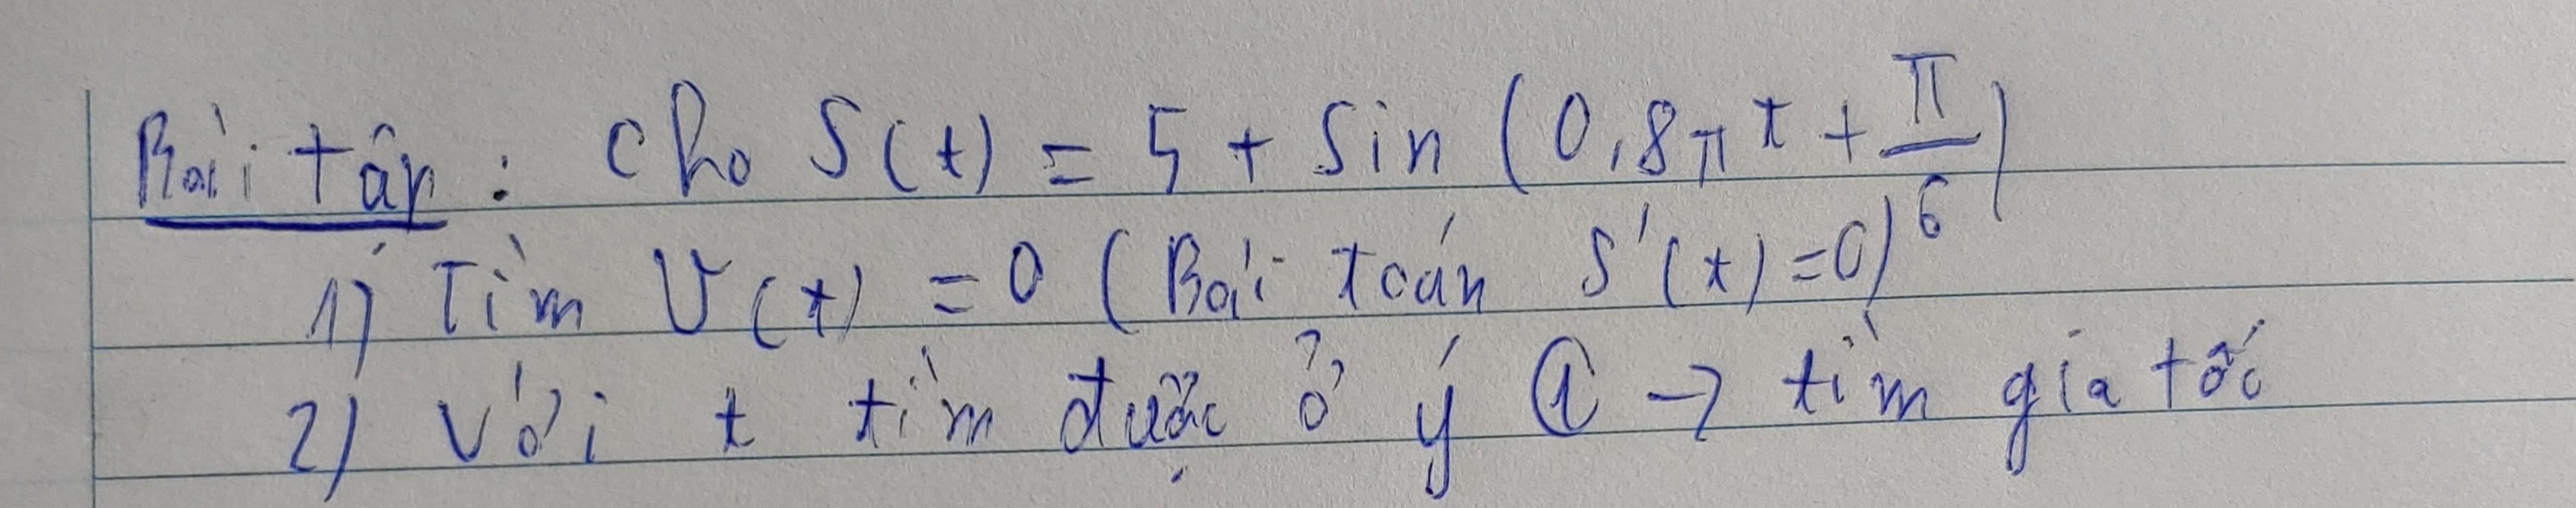 Bài tập: Cho S(t) = 5 + Sin (0,8π t + π/6)
1) Tìm V(t) = 0 (Bài toán S'(t) = 0)
2) Với t tìm được ở ý ① → tìm gia tốc